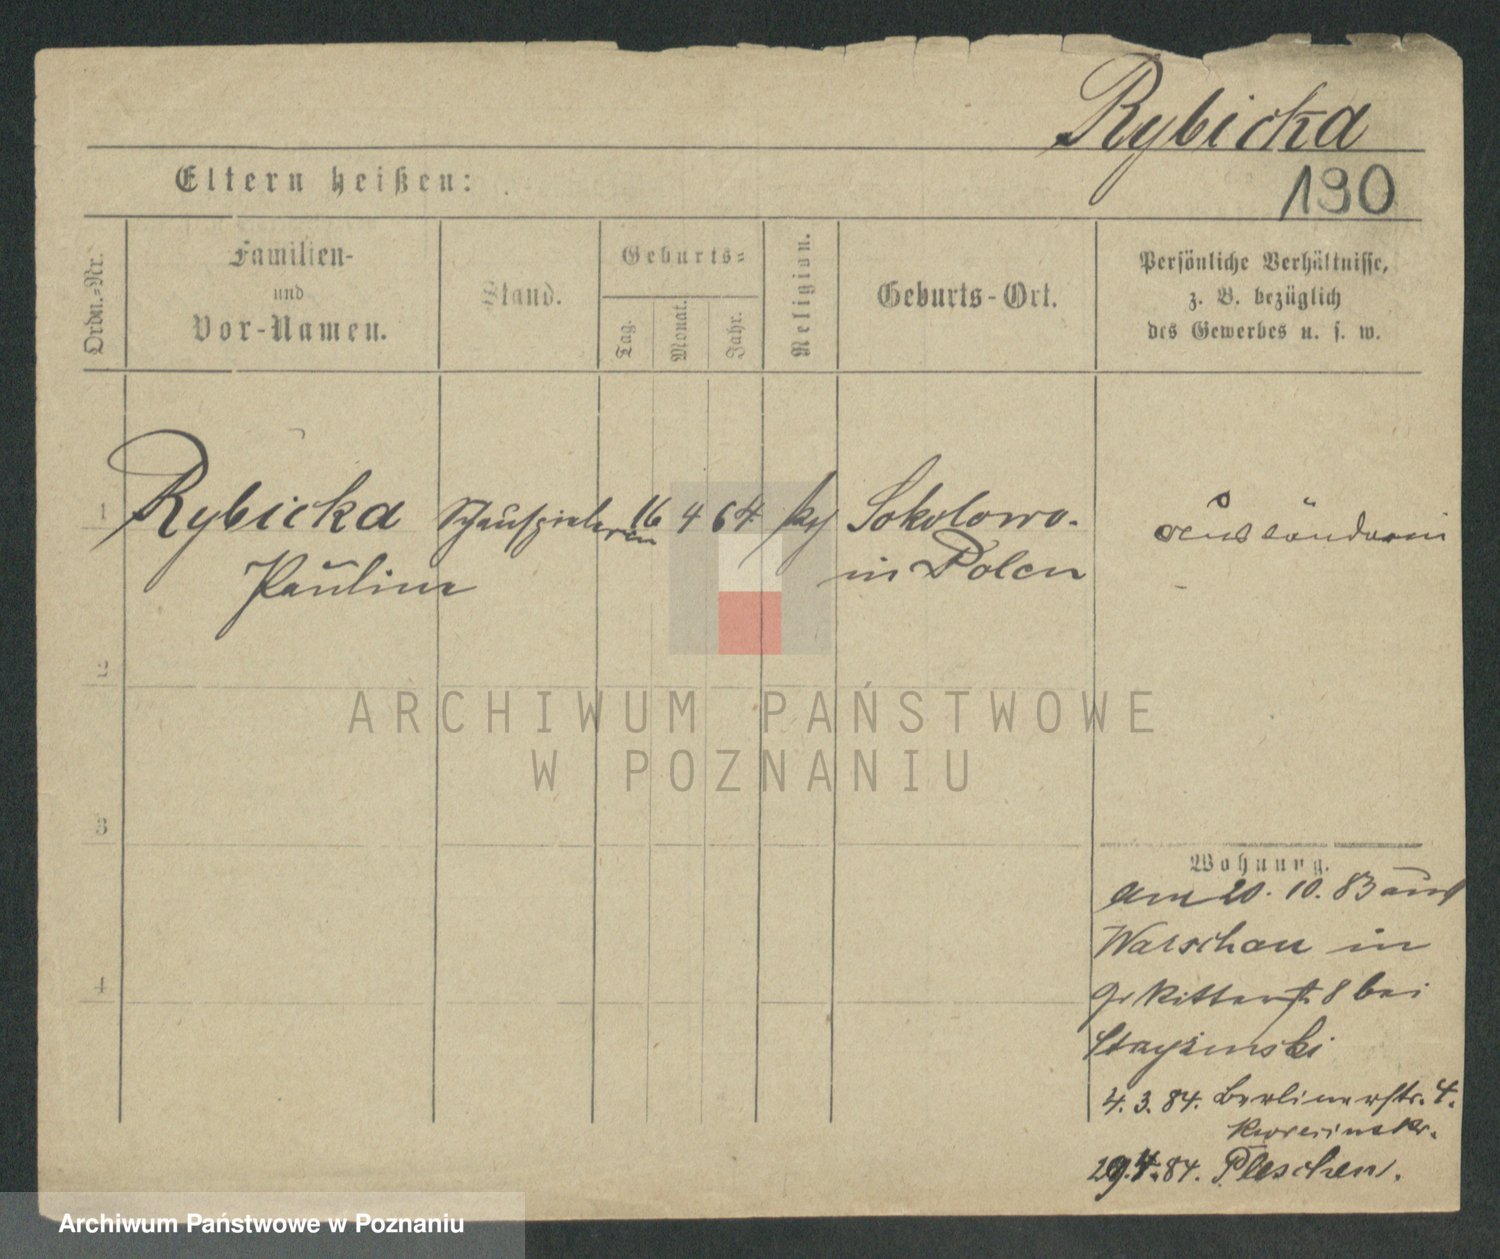 Rybicka
Eltern heißen:
190
Ordn.-Nr.
Familien-
und
Vor-Namen.
Stand.
Geburts-
Tag.
Monat.
Jahr.
Religion.
Geburts-Ort.
Persönliche Verhältnisse,
z. B. bezüglich
des Gewerbes u. s. w.
1
Rybicka
Schauspielerin
16 4 64
Sokolowo.
Ausländerin
Paulina
in Polen
2
ARCHIWUM PAŃSTWOWE
W POZNANIU
3
Wohnung.
am 20. 10. 83 aus
Warschau in
4
gr Ritterst. 8 bei
4. 3. 84. Berlinerstr. 4.
29.4.84. Pleschen.
Archiwum Państwowe w Poznaniu